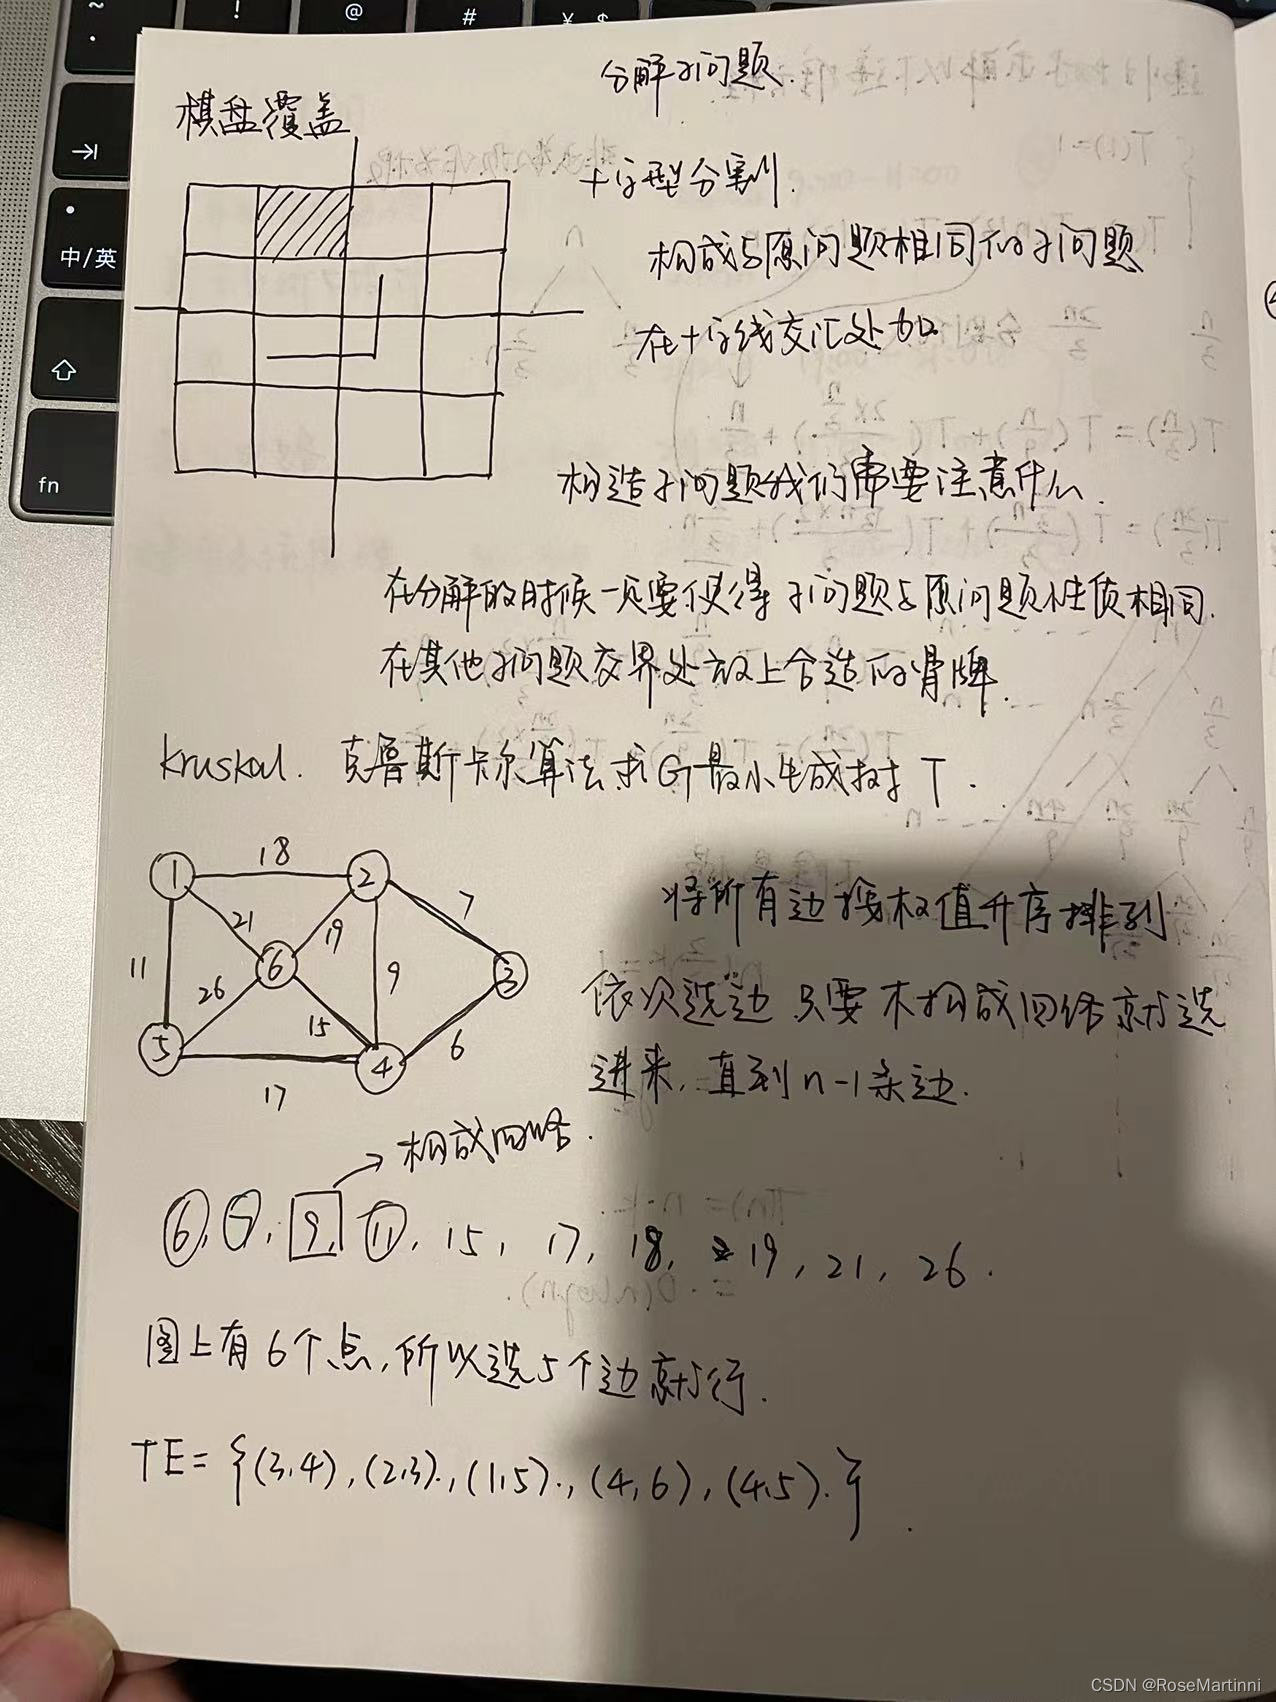 ~
!
@
#
¥
$
中/英
fn
分解子问题.
棋盘覆盖
十字型分割.
构成与原问题相同的子问题
在十字线交汇处加
构造子问题我们需要注意什么.
在分解的时候一定要使得子问题与原问题性质相同.
在其他子问题交界处放上合适的骨牌.
kruskal. 克鲁斯卡尔算法求G最小生成树T.
18
1
2
21
19
7
11
6
9
3
26
15
6
5
4
17
将所有边按权值升序排列
依次选边 只要不构成回络就选
进来,直到n-1条边.
构成回络.
6, 7, 9, 11, 15, 17, 18, 19, 21, 26.
图上有6个点,所以选5个边就行.
TE={(3,4),(2,3).,(1,5).,(4,6),(4,5).}
CSDN @RoseMartinni